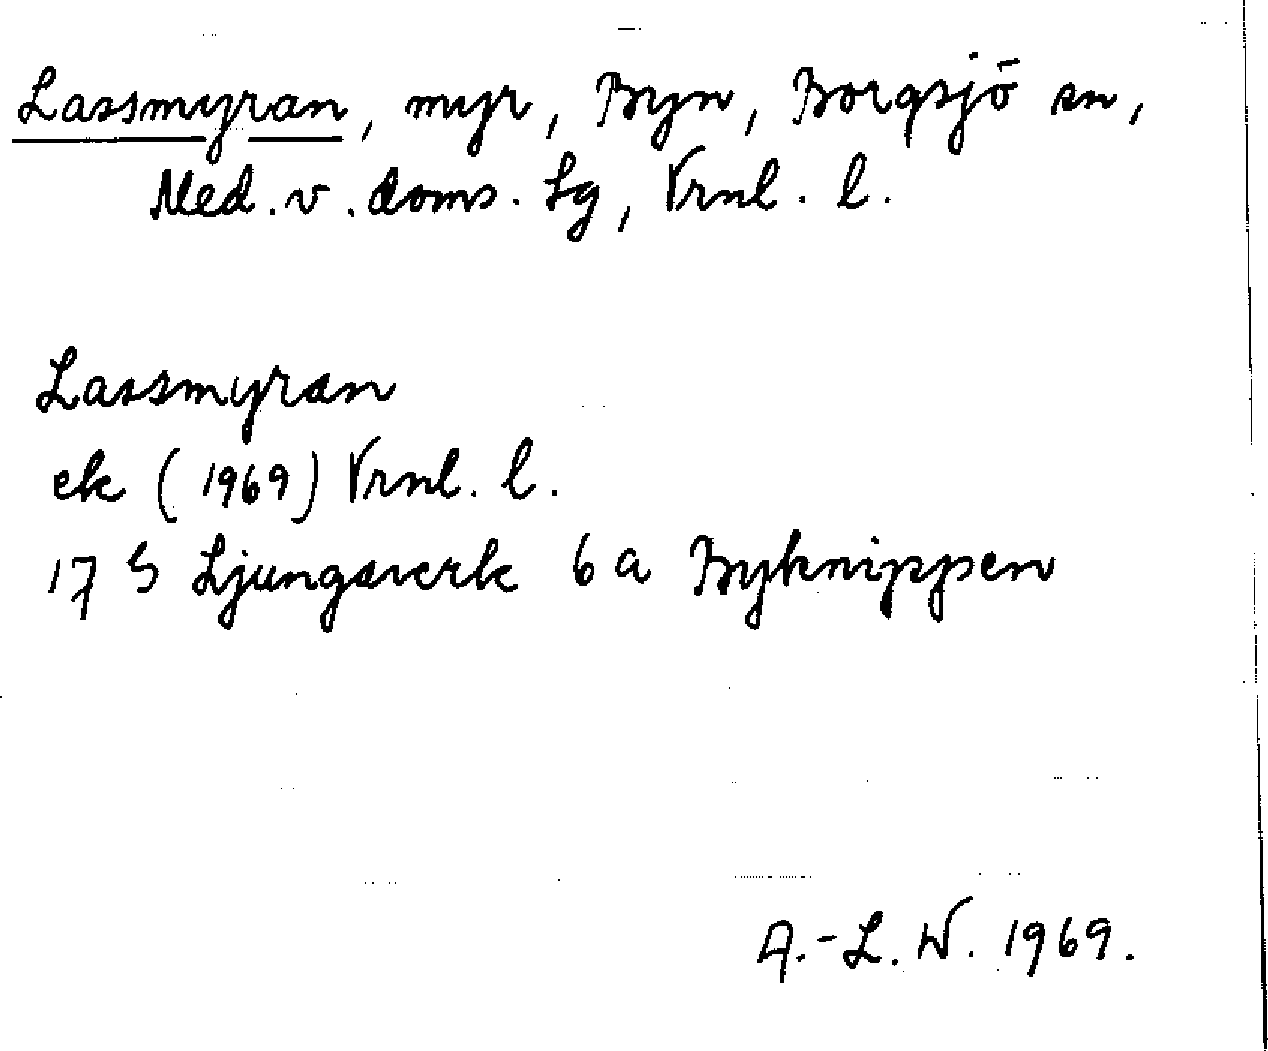 Lassmyran, myr, Byn, Borgsjö sn,
Med. v. doms. Lg, Vrnl. l.
Lassmyran
ek (1969) Vrnl. l.
17 G Ljungaverk 6 a Byknippen
A.-L. W. 1969.